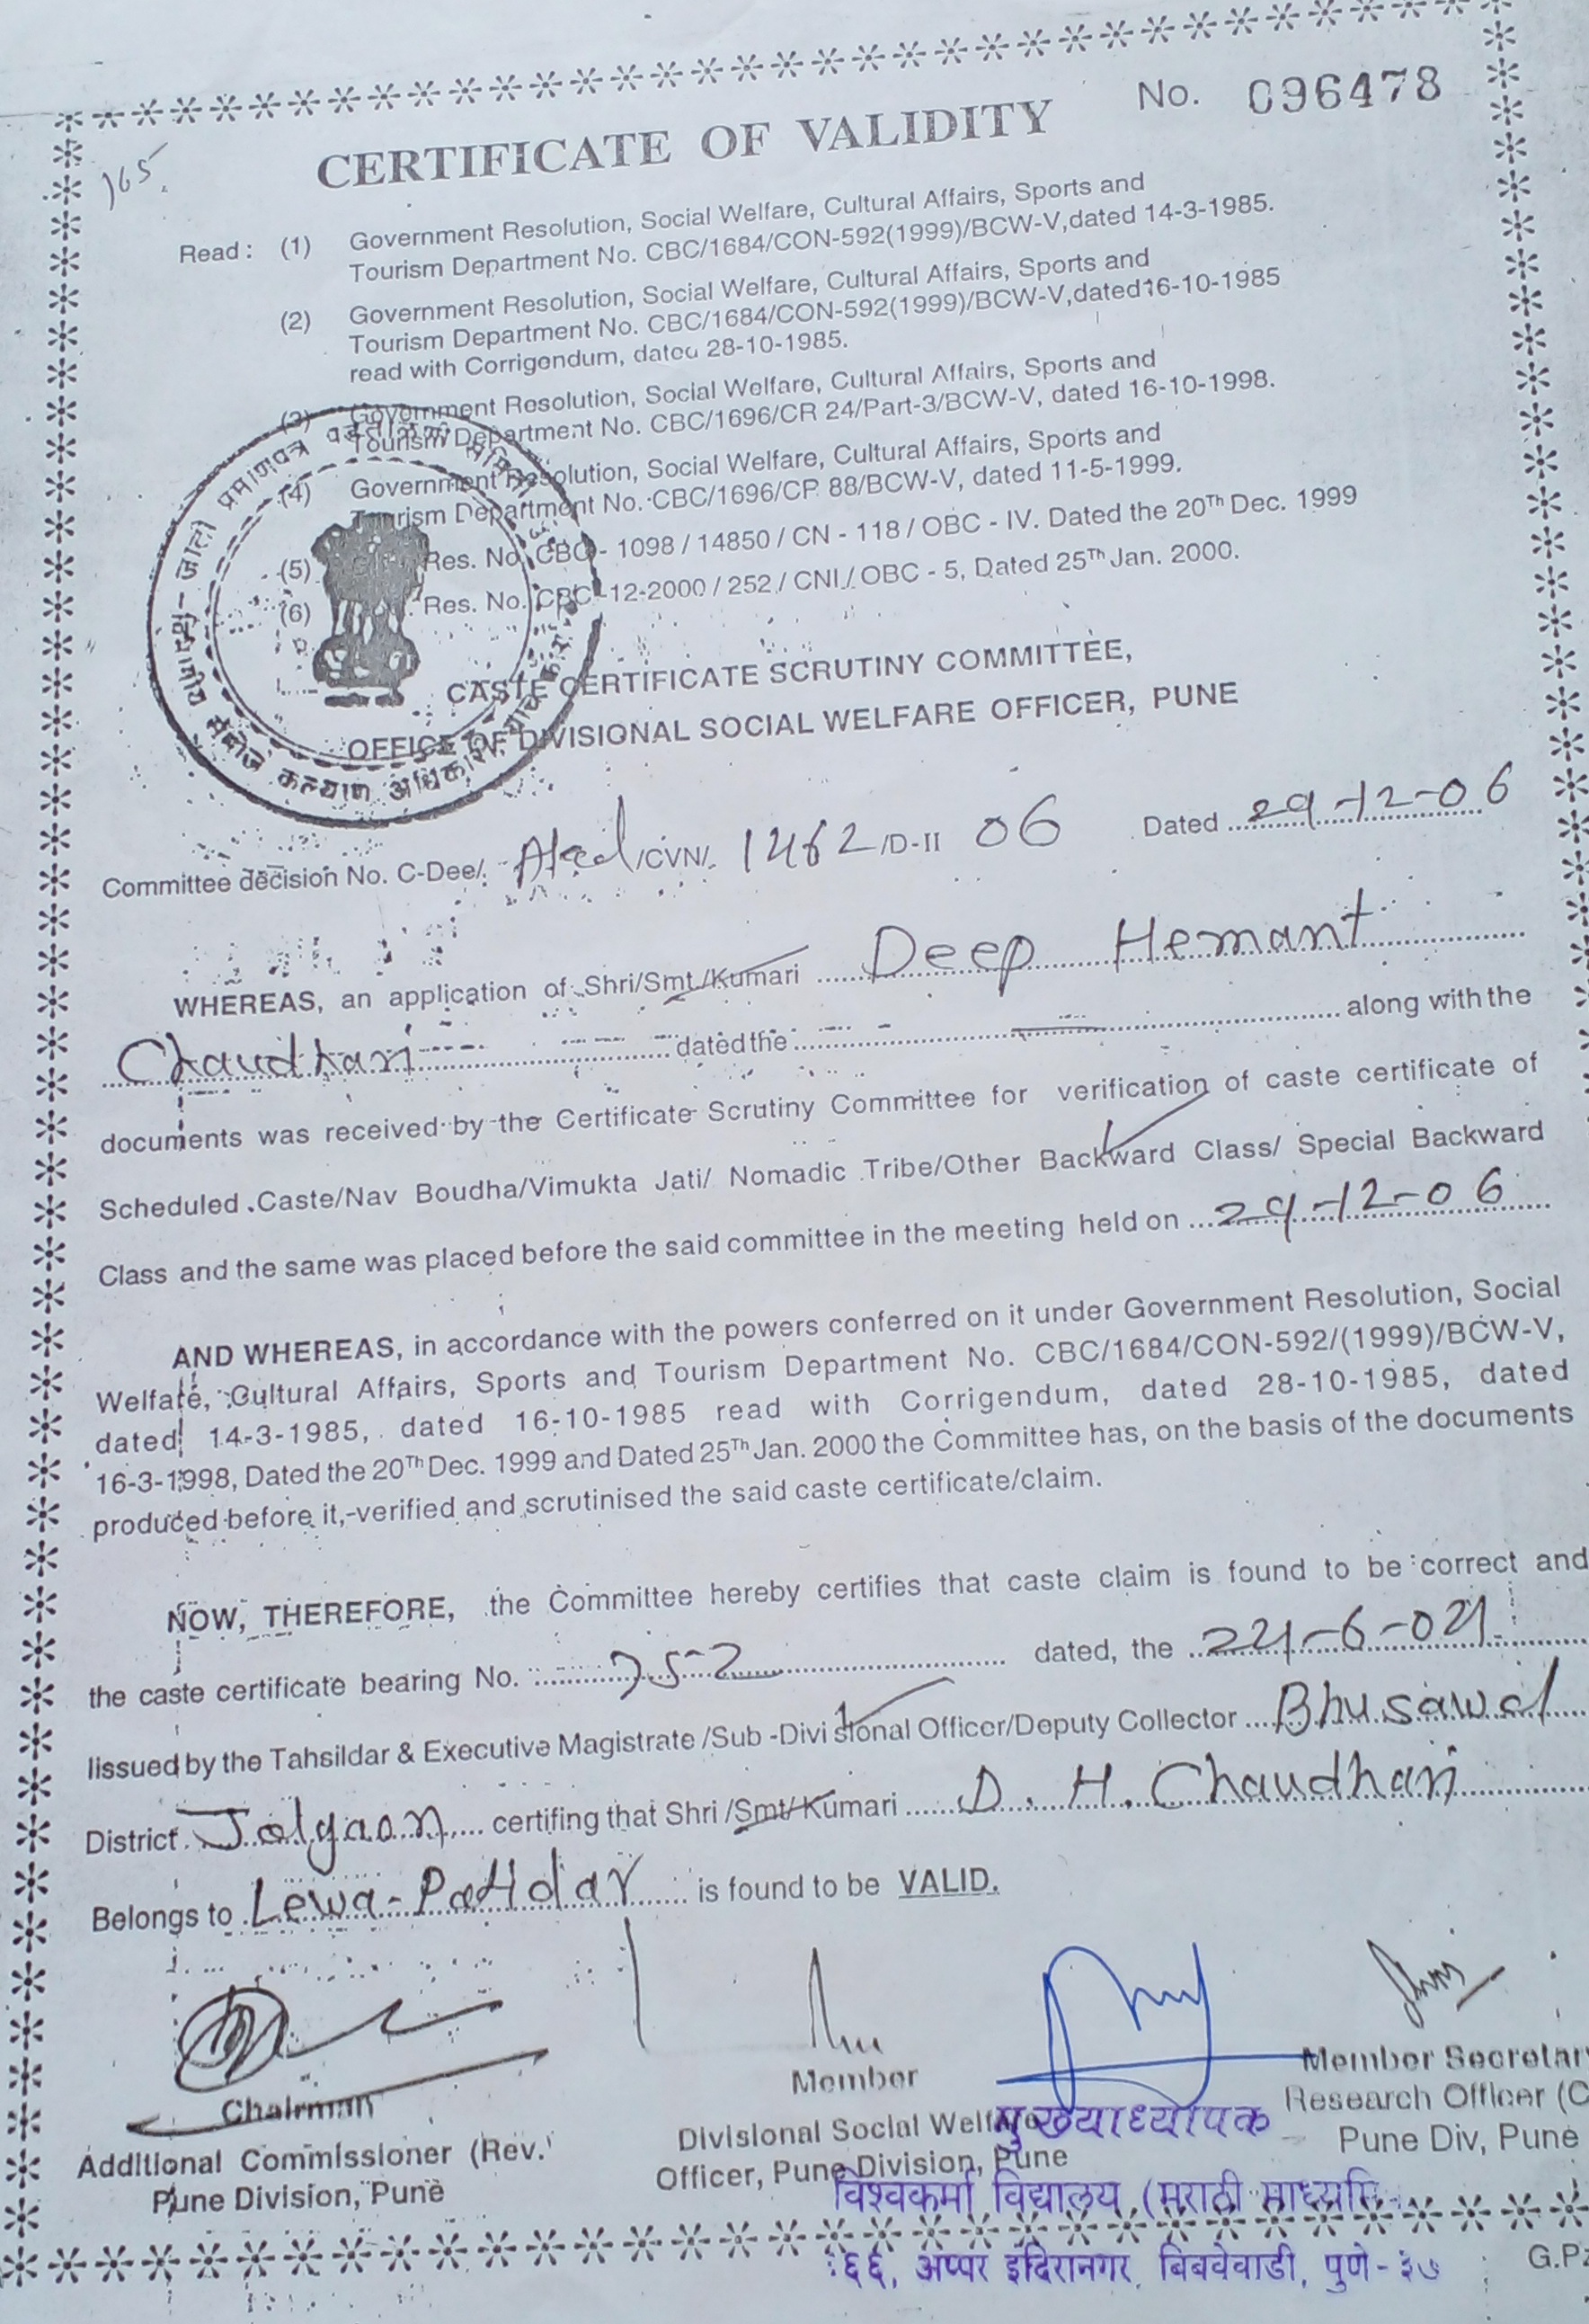 No. 096478
CERTIFICATE OF VALIDITY
165.
Read : (1) Government Resolution, Social Welfare, Cultural Affairs, Sports and
Tourism Department No. CBC/1684/CON-592(1999)/BCW-V,dated 14-3-1985.
(2) Government Resolution, Social Welfare, Cultural Affairs, Sports and
Tourism Department No. CBC/1684/CON-592(1999)/BCW-V,dated16-10-1985
read with Corrigendum, dated 28-10-1985.
(3) Government Resolution, Social Welfare, Cultural Affairs, Sports and
Tourism Department No. CBC/1696/CR 24/Part-3/BCW-V, dated 16-10-1998.
(4) Government Resolution, Social Welfare, Cultural Affairs, Sports and
Tourism Department No. CBC/1696/CR 88/BCW-V, dated 11-5-1999.
(5) Res. No. CBC - 1098 / 14850 / CN - 118 / OBC - IV. Dated the 20Th Dec. 1999
(6) Res. No. CBC -12-2000 / 252 / CNI / OBC - 5, Dated 25Th Jan. 2000.
जाती प्रमाणपत्र पडताळणी समिती
विभागीय समाज कल्याण अधिकारी
CASTE CERTIFICATE SCRUTINY COMMITTEE,
OFFICE OF DIVISIONAL SOCIAL WELFARE OFFICER, PUNE
Committee decision No. C-Dee/. /CVN/. 1462 /D-II 06 Dated 29-12-06
WHEREAS, an application of Shri/Smt./Kumari Deep Hemant
Chaudhari dated the along with the
documents was received by the Certificate Scrutiny Committee for verification of caste certificate of
Scheduled Caste/Nav Boudha/Vimukta Jati/ Nomadic Tribe/Other Backward Class/ Special Backward
Class and the same was placed before the said committee in the meeting held on 29-12-06
AND WHEREAS, in accordance with the powers conferred on it under Government Resolution, Social
Welfare, Cultural Affairs, Sports and Tourism Department No. CBC/1684/CON-592/(1999)/BCW-V,
dated 14-3-1985, dated 16-10-1985 read with Corrigendum, dated 28-10-1985, dated
16-3-1998, Dated the 20Th Dec. 1999 and Dated 25Th Jan. 2000 the Committee has, on the basis of the documents
produced before it, verified and scrutinised the said caste certificate/claim.
NOW, THEREFORE, the Committee hereby certifies that caste claim is found to be correct and
the caste certificate bearing No. 752 dated, the
Iissued by the Tahsildar & Executive Magistrate /Sub -Divi sional Officer/Deputy Collector Bhusawal
District Jalgaon certifing that Shri /Smt/ Kumari D. H. Chaudhari
Belongs to Lewa-Patidar is found to be VALID.
Chairman
Additional Commissioner (Rev.
Pune Division, Pune
Member
Divisional Social Welfare
Officer, Pune Division, Pune
Member Secretar
Research Officer (C
Pune Div, Pune
मुख्याध्यापक
विश्वकर्मा विद्यालय (मराठी माध्यमि
६६, अप्पर इंदिरानगर, बिबवेवाडी, पुणे-३७
G.P